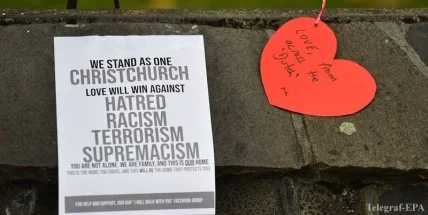 WE STAND AS ONE
CHRISTCHURCH
LOVE WILL WIN AGAINST
HATRED
RACISM
TERRORISM
SUPREMACISM
YOU ARE NOT ALONE. WE ARE FAMILY, AND THIS IS OUR HOME
THIS IS THE HOME YOU CHOSE, AND THIS WILL BE THE HOME THAT PROTECTS YOU
FOR HELP AND SUPPORT, JOIN OUR "I WILL WALK WITH YOU" FACEBOOK GROUP
LOVE, from
across the
"Ditch"
Telegraf-EPA